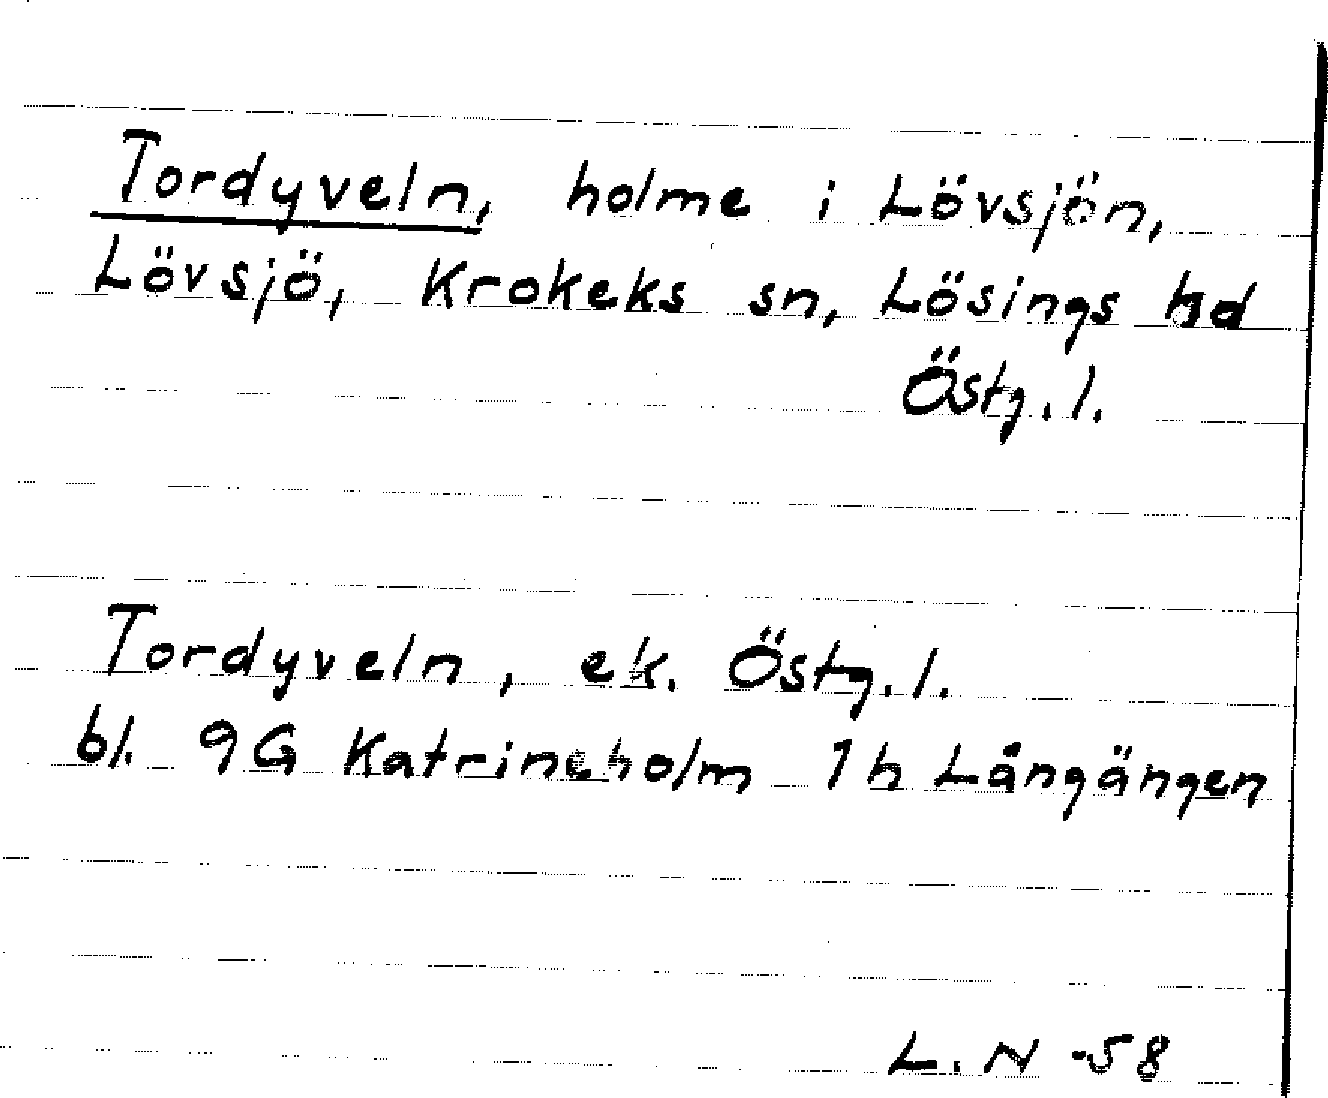 Tordyveln, holme i Lövsjön,
Lövsjö, Krokeks sn, Lösings hd
Östg. l.
Tordyveln, ek. Östg. l.
bl. 9G Katrineholm 1h Långängen
L. N -58